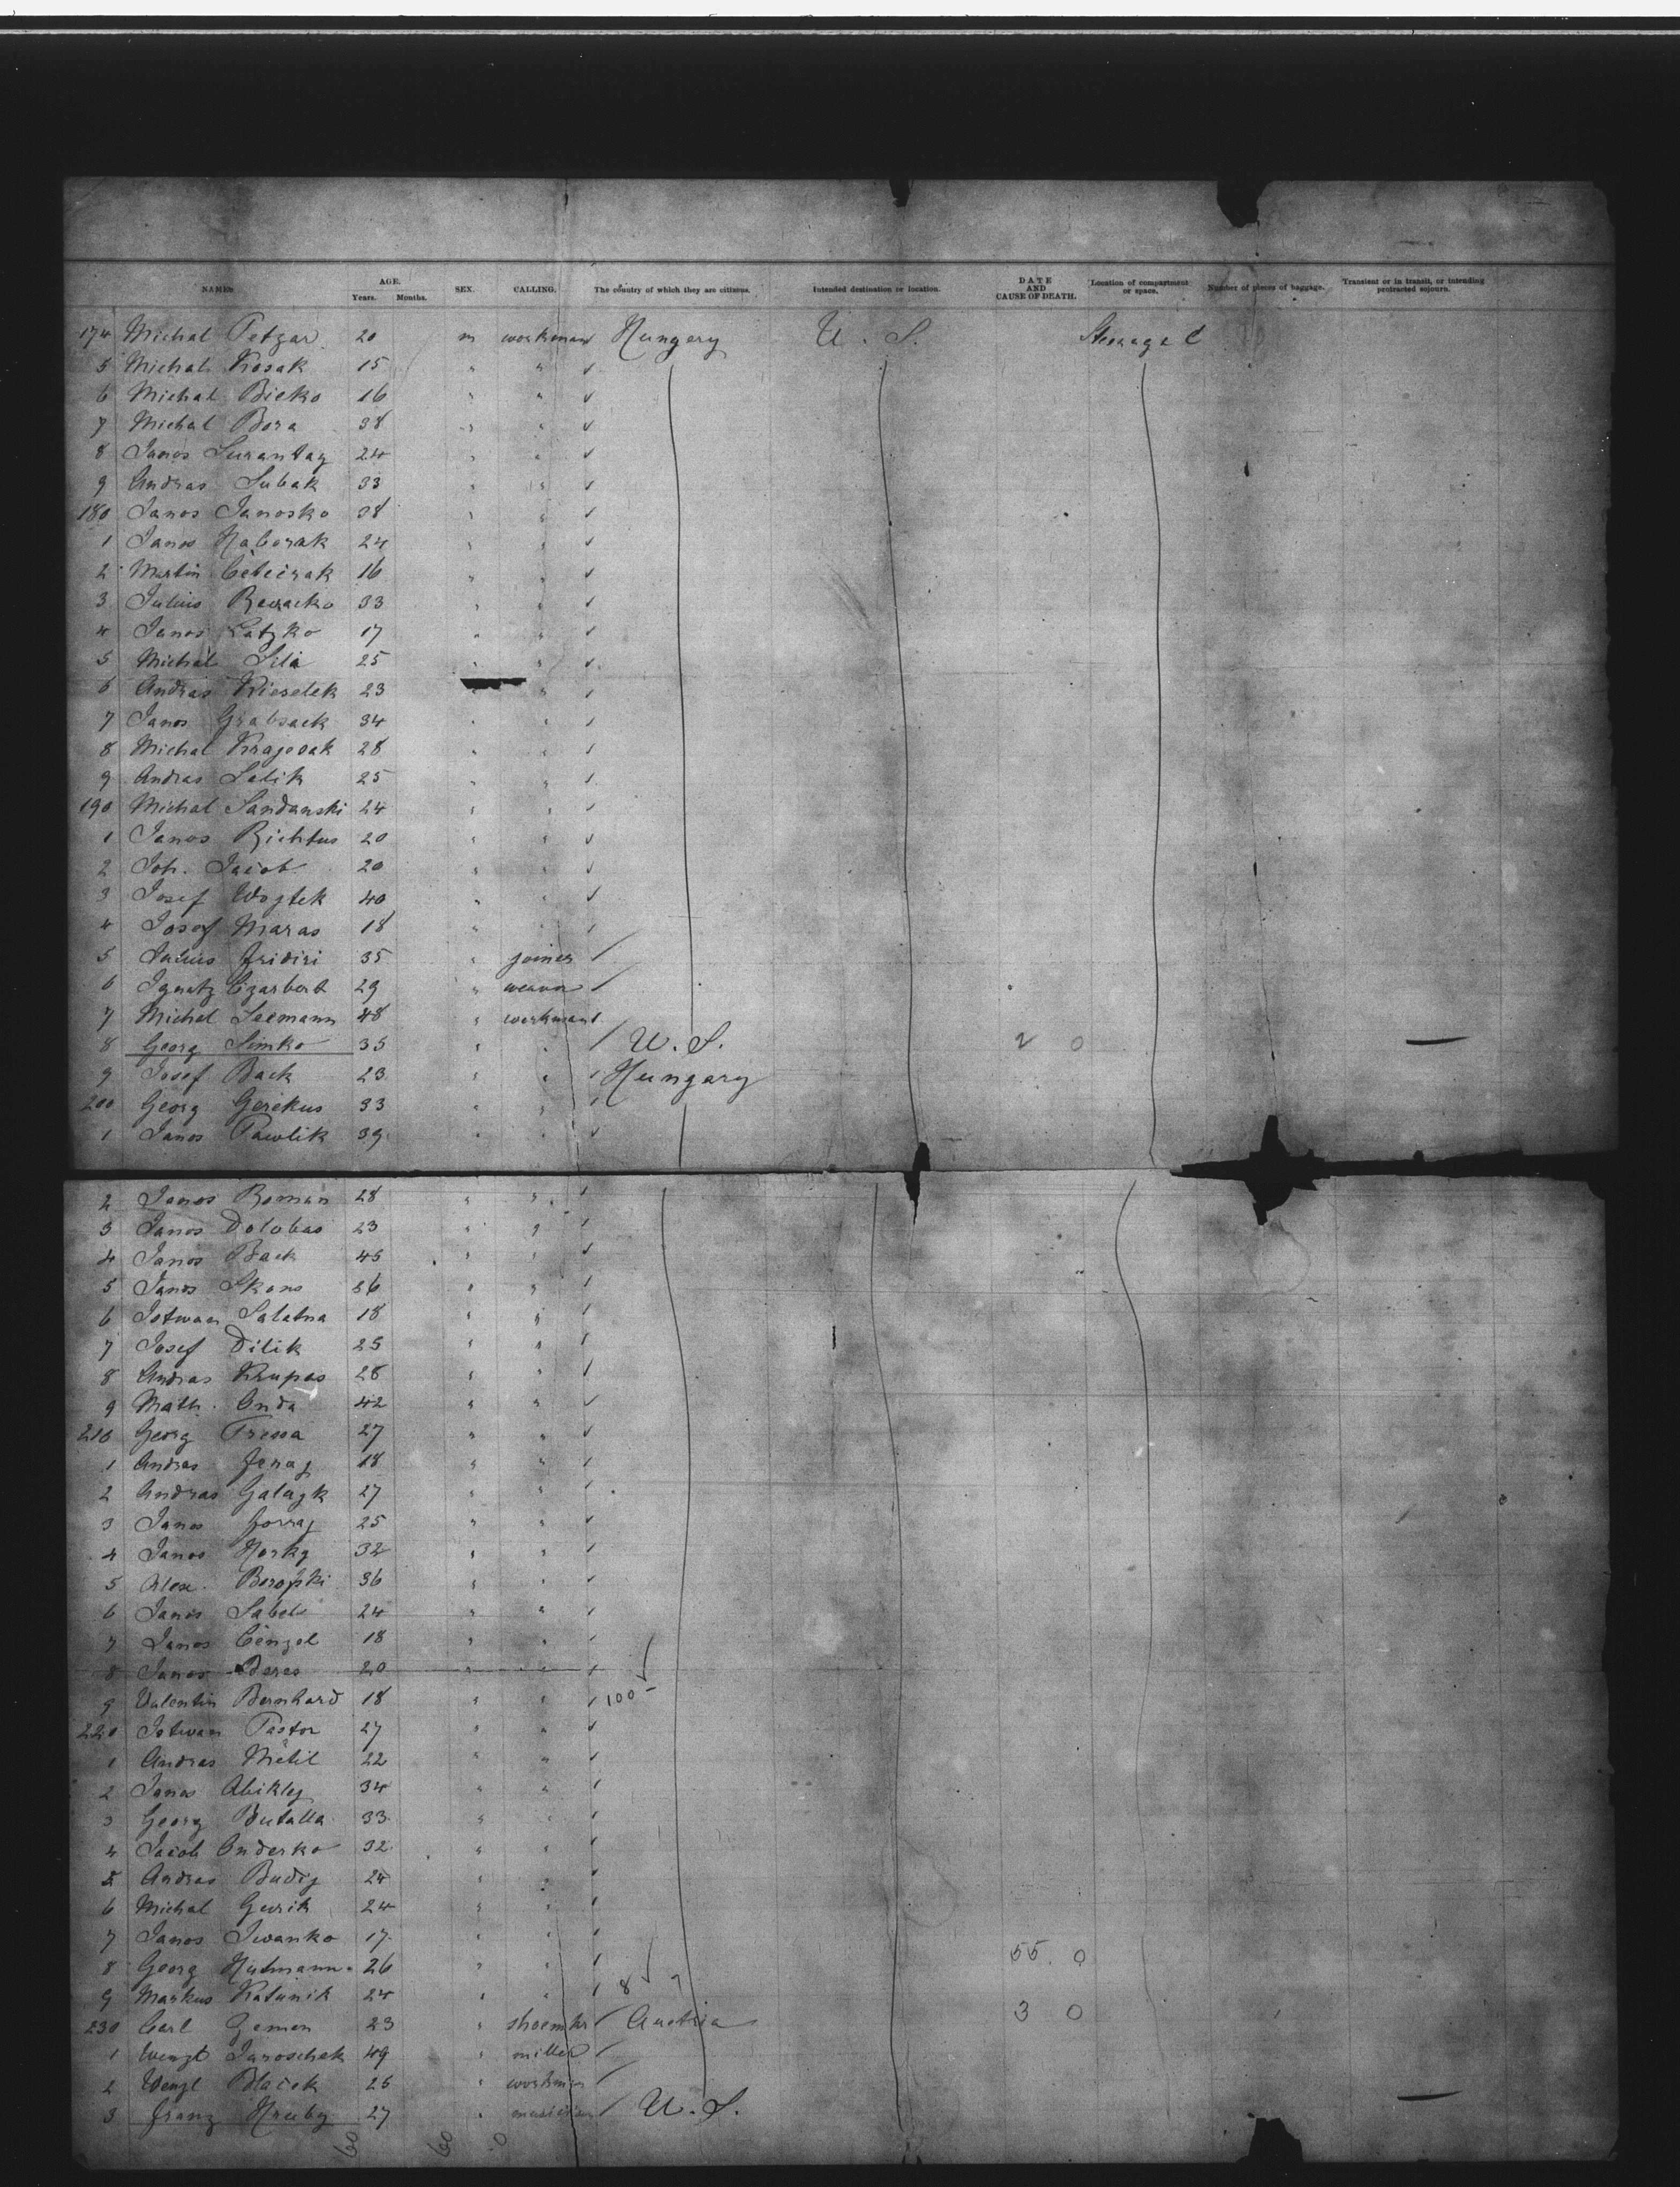 NAMES AGE. Years. Months. SEX. CALLING. The country of which they are citizens. Intended destination or location. DATE AND CAUSE OF DEATH. Location of compartment or space. Number of pieces of baggage. Transient or in transit, or intending protracted sojourn.
174 Michal Petzar 20 m workman Hungery U. S. Steerage C
5 Michal Kosak 15 " "
6 Michal Bieko 16 " "
7 Michal Bora 38 " "
8 Janos Surantay 24 " "
9 Andras Subak 33 " "
180 Janos Janosko 38 " "
1 Janos Haborak 24 " "
2 Martin 16 " "
3 Julius 33 " "
4 Janos Latzko 17 " "
5 Michal Sila 25 " "
6 Andras Kieselek 23 " "
7 Janos Grabsack 34 " "
8 Michal 28 " "
9 Andras Salik 25 " "
190 Michal Sandanski 24 " "
1 Janos Richtus 20 " "
2 Joh. Jacob 20 " "
3 Josef Wojtek 40 " "
4 Josef Maras 18 " "
5 Julius Fridiri 35 " joiner
6 Ignatz Czarbert 29 " weaver
7 Michel Seemann 48 " workman
8 Georg Simko 35 " " U. S. 2 0
9 Josef Back 23 " " Hungary
200 Georg Gerekus 33 " "
1 Janos Pawlik 39 " "
2 Janos Roman 28 " "
3 Janos Dolobas 23 " "
4 Janos Back 45 " "
5 Janos Skons 36 " "
6 Istwan Salatna 18 " "
7 Josef Dilik 25 " "
8 Andras Krupas 28 " "
9 Math. Onda 42 " "
210 Georg Tressa 27 " "
1 Andras Fenaj 18 " "
2 Andras Galajk 27 " "
3 Janos 25 " "
4 Janos Horky 32 " "
5 Alex. 36 " "
6 Janos Sabel 24 " "
7 Janos Cenzel 18 " "
8 Janos Beres 20 " "
9 Valentin Bernhard 18 " " 100-
220 Istwan Pastor 27 " "
1 Andras Metil 22 " "
2 Janos Abikley 34 " "
3 Georg Butalla 33 " "
4 Jacob Onderko 32 " "
5 Andras Budij 24 " "
6 Michal Gurik 24 " "
7 Janos Iwanko 17 " "
8 Georg Hutmann 26 " " 55 0
9 Markus Katunik 24 " " 8
230 Carl Zeman 23 " shoemkr Austria 3 0
1 Wenzl Jaroschek 49 " miller
2 Wenzl Placek 26 " workman
3 Franz Hruby 27 " musician U. S.
60 60 0